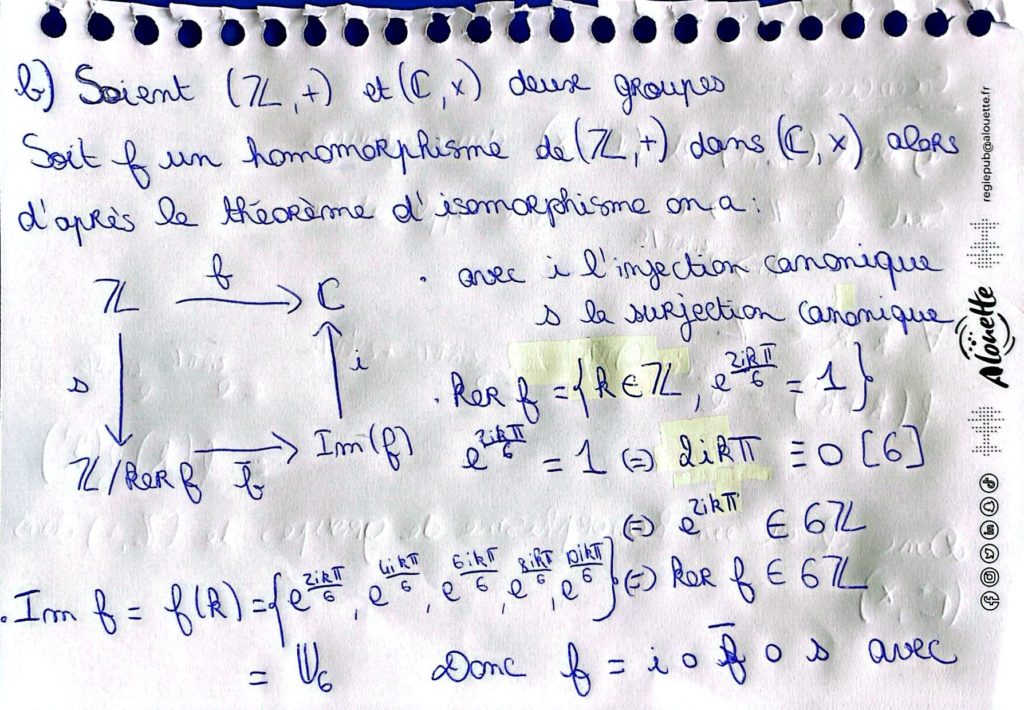 b) Soient (ℤ,+) et (ℂ,×) deux groupes
Soit f un homomorphisme de (ℤ,+) dans (ℂ,×) alors
d'après le théorème d'isomorphisme on a :
ℤ f ℂ
· avec i l'injection canonique
s la surjection canonique
s i
ℤ/Ker f f̄ Im(f)
· Ker f = {k ∈ ℤ, e^(2ikπ/6) = 1}
e^(2ikπ/6) = 1 (=) 2ikπ ≡ 0 [6]
(=) e^(2ikπ) ∈ 6ℤ
(=) Ker f ∈ 6ℤ
· Im f = f(k) = {e^(2ikπ/6), e^(4ikπ/6), e^(6ikπ/6), e^(8ikπ/6), e^(10ikπ/6)}
= 𝕌₆ Donc f = i o f̄ o s avec
regiepub@alouette.fr
Alouette